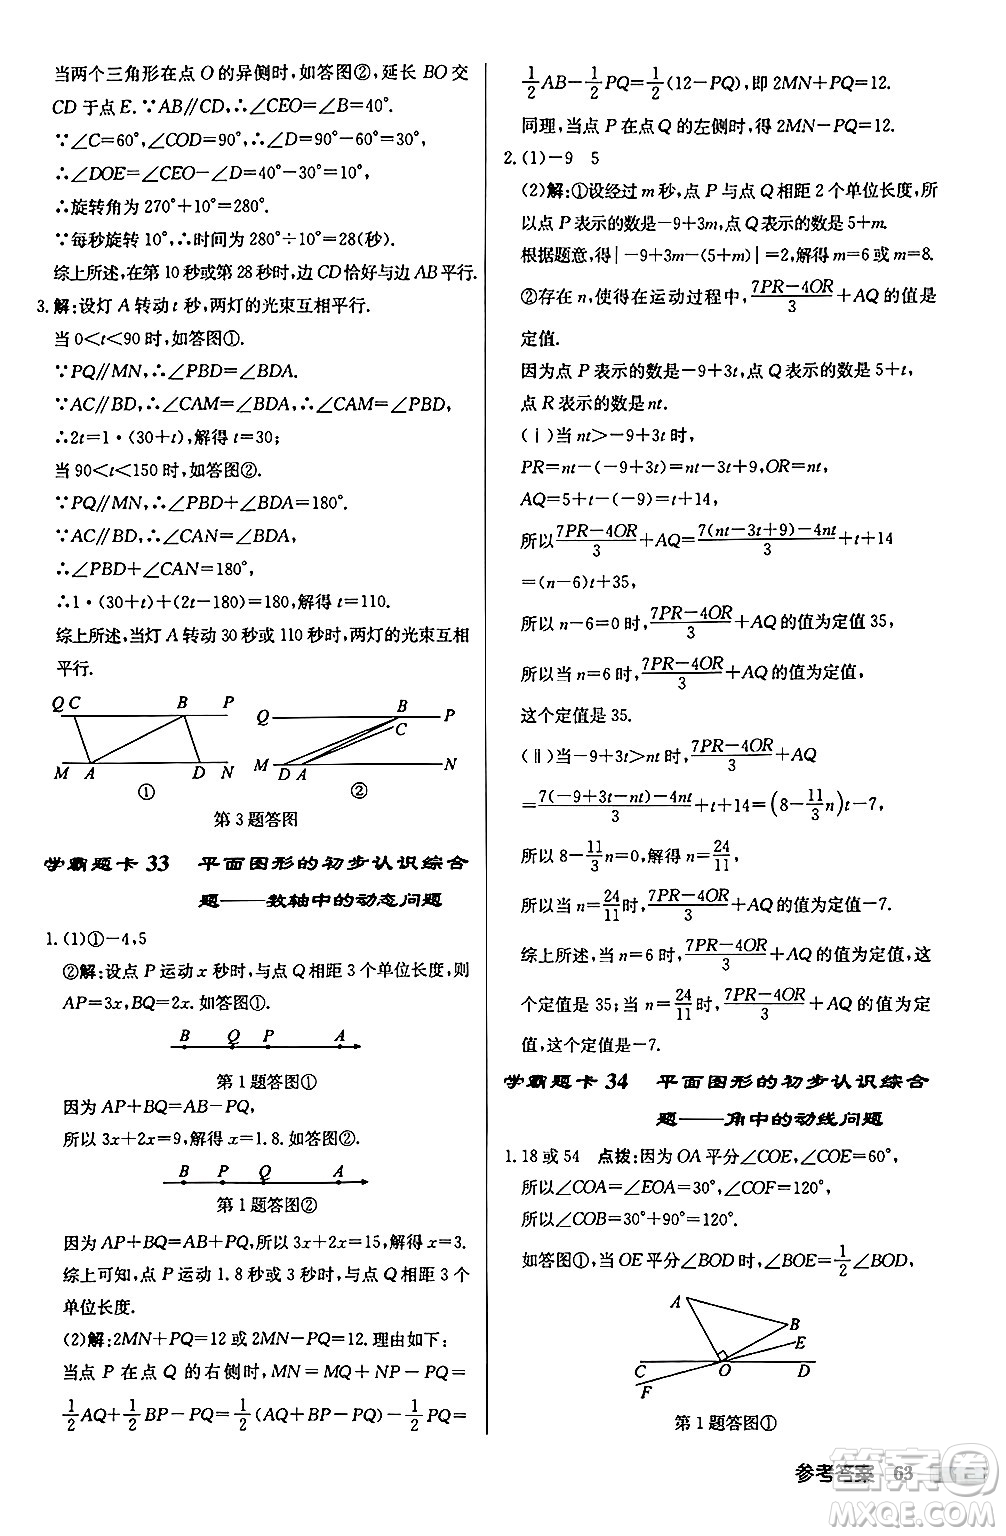 当两个三角形在点O的异侧时,如答图②,延长BO交
CD于点E.∵AB∥CD,∴∠CEO=∠B=40°.
∵∠C=60°,∠COD=90°,∴∠D=30°.
∴∠DOE=∠CEO-∠D=40°-30°=10°.
∴旋转角为270°+10°=280°.
∵每秒旋转10°,∴时间为280°÷10°=28(秒).
综上所述,在第10秒或第28秒时,边CD恰好与边AB平行.
3.解:设灯A转动t秒,两灯的光束互相平行.
当0<t<90时,如答图①.
∵PQ∥MN,∴∠PBD=∠BDA.
∵AC∥BD,∴∠CAM=∠BDA,∴∠CAM=∠PBD,
∴2t=1·(30+t),解得t=30;
当90<t<150时,如答图②.
∵PQ∥MN,∴∠PBD+∠BDA=180°.
∵AC∥BD,∴∠CAN=∠BDA,
∴∠PBD+∠CAN=180°,
∴1·(30+t)+(2t-180)=180,解得t=110.
综上所述,当灯A转动30秒或110秒时,两灯的光束互相
平行.
Q C B P
M A D N
①
Q B P
C
M D A N
②
第3题答图
学霸题卡33 平面图形的初步认识综合
题——数轴中的动态问题
1.(1)①-4,5
②解:设点P运动x秒时,与点Q相距3个单位长度,则
AP=3x,BQ=2x.如答图①.
B Q P A
第1题答图①
因为AP+BQ=AB-PQ,
所以3x+2x=9,解得x=1.8.如答图②.
B P Q A
第1题答图②
因为AP+BQ=AB+PQ,所以3x+2x=15,解得x=3.
综上可知,点P运动1.8秒或3秒时,与点Q相距3个
单位长度.
(2)解:2MN+PQ=12或2MN-PQ=12.理由如下:
当点P在点Q的右侧时,MN=MQ+NP-PQ=
1/2AQ+1/2BP-PQ=1/2(AQ+BP-PQ)-1/2PQ=
1/2AB-1/2PQ=1/2(12-PQ),即2MN+PQ=12.
同理,当点P在点Q的左侧时,得2MN-PQ=12.
2.(1)-9 5
(2)解:①设经过m秒,点P与点Q相距2个单位长度,所
以点P表示的数是-9+3m,点Q表示的数是5+m.
根据题意,得|-9+3m-(5+m)|=2.解得m=6或m=8.
②存在n,使得在运动过程中,(7PR-4OR)/3+AQ的值是
定值.
因为点P表示的数是-9+3t,点Q表示的数是5+t,
点R表示的数是nt.
(ⅰ)当nt>-9+3t时,
PR=nt-(-9+3t)=nt-3t+9,OR=nt,
AQ=5+t-(-9)=t+14,
所以(7PR-4OR)/3+AQ=(7(nt-3t+9)-4nt)/3+t+14
=(n-6)t+35,
所以n-6=0时,(7PR-4OR)/3+AQ的值为定值35,
所以当n=6时,(7PR-4OR)/3+AQ的值为定值,
这个定值是35.
(ⅱ)当-9+3t>nt时,(7PR-4OR)/3+AQ
=(7(-9+3t-nt)-4nt)/3+t+14=(8-11/3n)t-7,
所以8-11/3n=0,解得n=24/11,
所以当n=24/11时,(7PR-4OR)/3+AQ的值为定值-7.
综上所述,当n=6时,(7PR-4OR)/3+AQ的值为定值,这
个定值是35;当n=24/11时,(7PR-4OR)/3+AQ的值为定
值,这个定值是-7.
学霸题卡34 平面图形的初步认识综合
题——角中的动线问题
1.18或54 点拨:因为OA平分∠COE,∠COE=60°,
所以∠COA=∠EOA=30°,∠COF=120°,
所以∠COB=30°+90°=120°.
如答图①,当OE平分∠BOD时,∠BOE=1/2∠BOD,
A
B
E
C O D
F
第1题答图①
参考答案 63
MXQE.COM